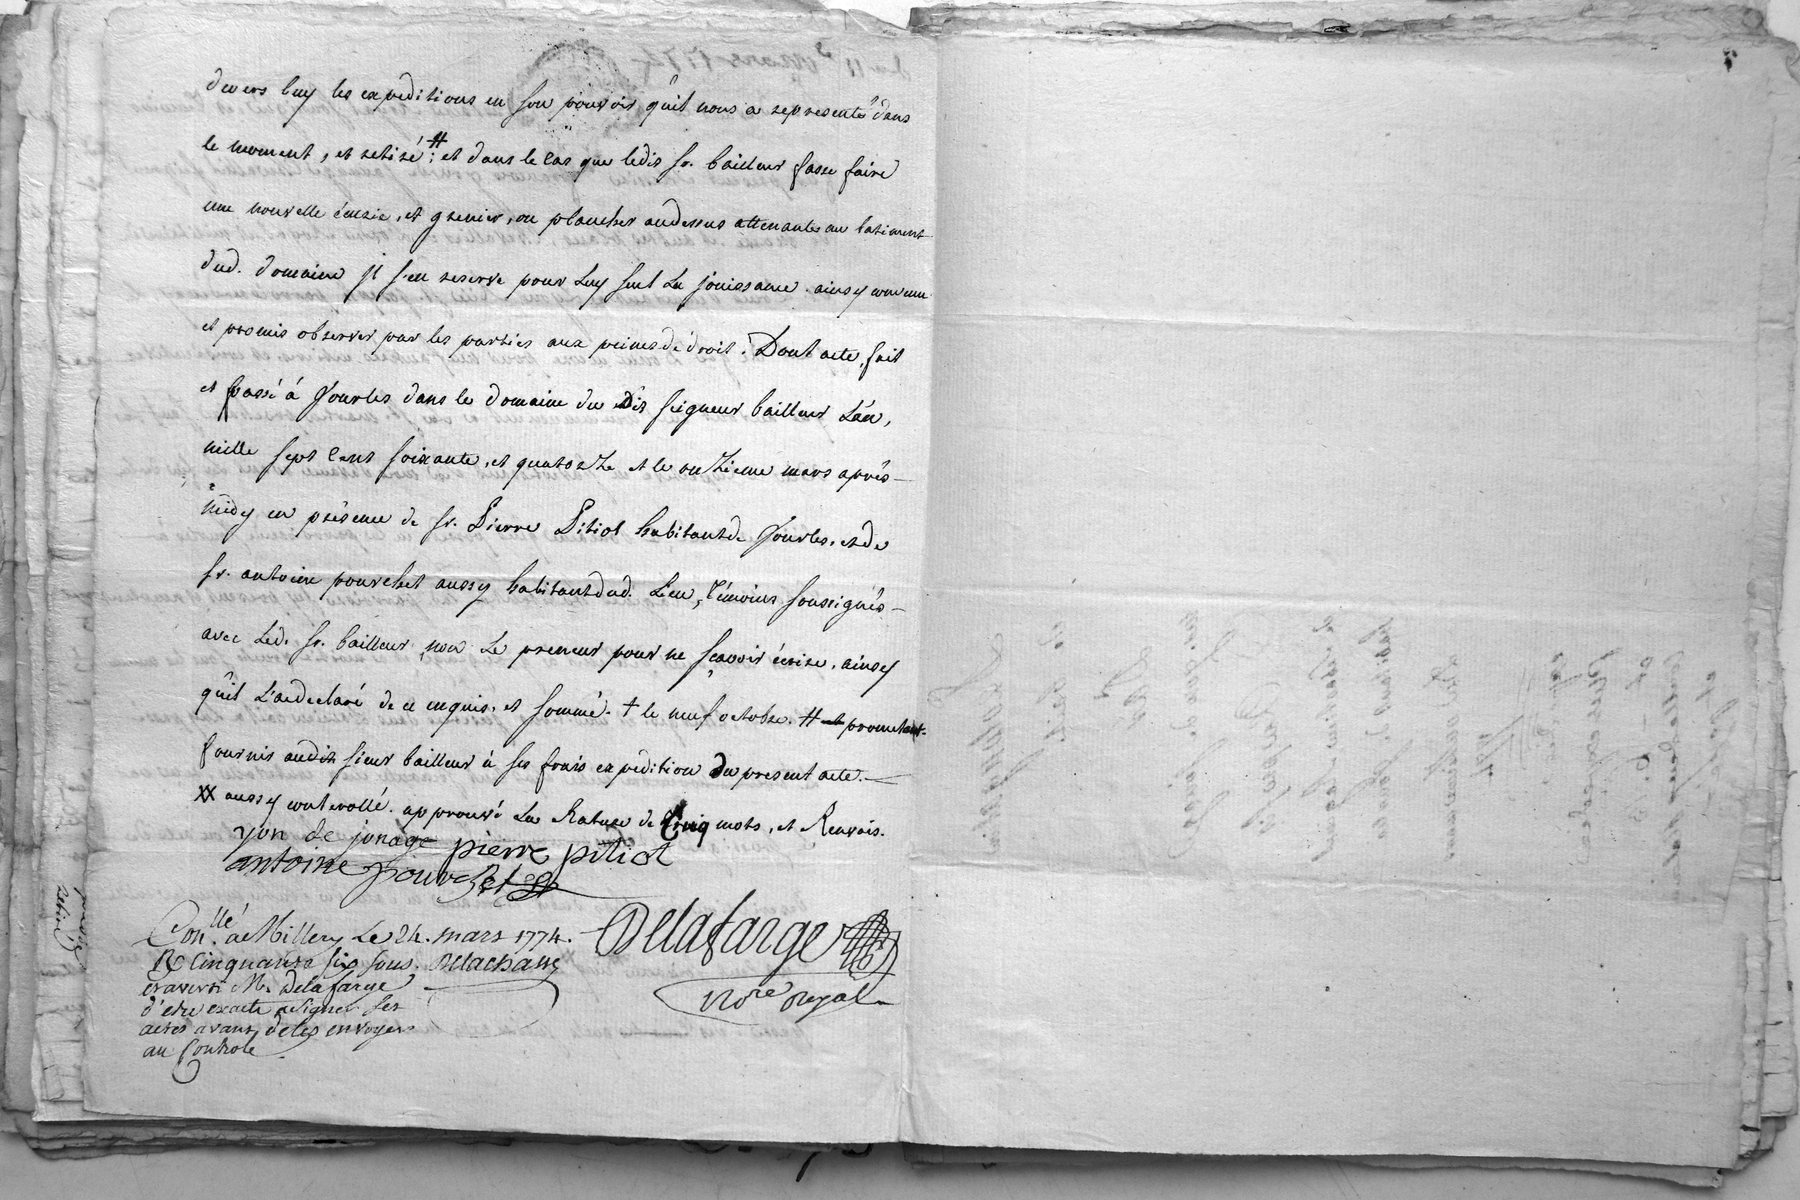 devers luy les expeditions en son pouvoir qu'il nous a representé dans
le moment, et retiré # ; et dans le cas que ledit sr. bailleur fasse faire
une nouvelle écurie, et grenier, ou plancher audessus attenantes au batiment
dud. domaine il s'en reserve pour luy seul la jouissance. ainsy convenu
et promis observer par les parties aux peines de droit. Dont acte, fait
et passé á fourles dans le domaine du dit seigneur bailleur L'an,
mille sept cent soixante, et quatorze et le onzieme mars aprés-
midy en présence de sr. Pierre Pitiot habitant de fourles, et de
sr. antoine pourchet aussy habitant dud. Lieu, témoins soussignés-
avec Led. sr. bailleur, non Le preneur pour ne sçavoir écrire, ainsy
qu'il L'a declaré de ce enquis, et sommé. + le neuf octobre. # promettant
fournir audit sieur bailleur á ses frais expedition du present acte.
XX aussy controllé. approuvé La Rature de Cinq mots, et Renvois.
yon de jonage pierre pitiot
antoine pourchet
Delafarge
Nore Royal
Conllé. a Millery Le 24. mars 1774.
R Cinquante six sous. Delachasse
et averti Mr. Delafarge
d'etre exacte a signer ses
actes avant de les envoyer
au Controle.